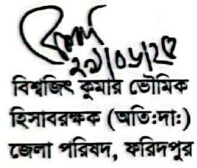 ২৯/০৬/২৫
বিশ্বজিৎ কুমার ভৌমিক
হিসাবরক্ষক (অতি:দা:)
জেলা পরিষদ, ফরিদপুর